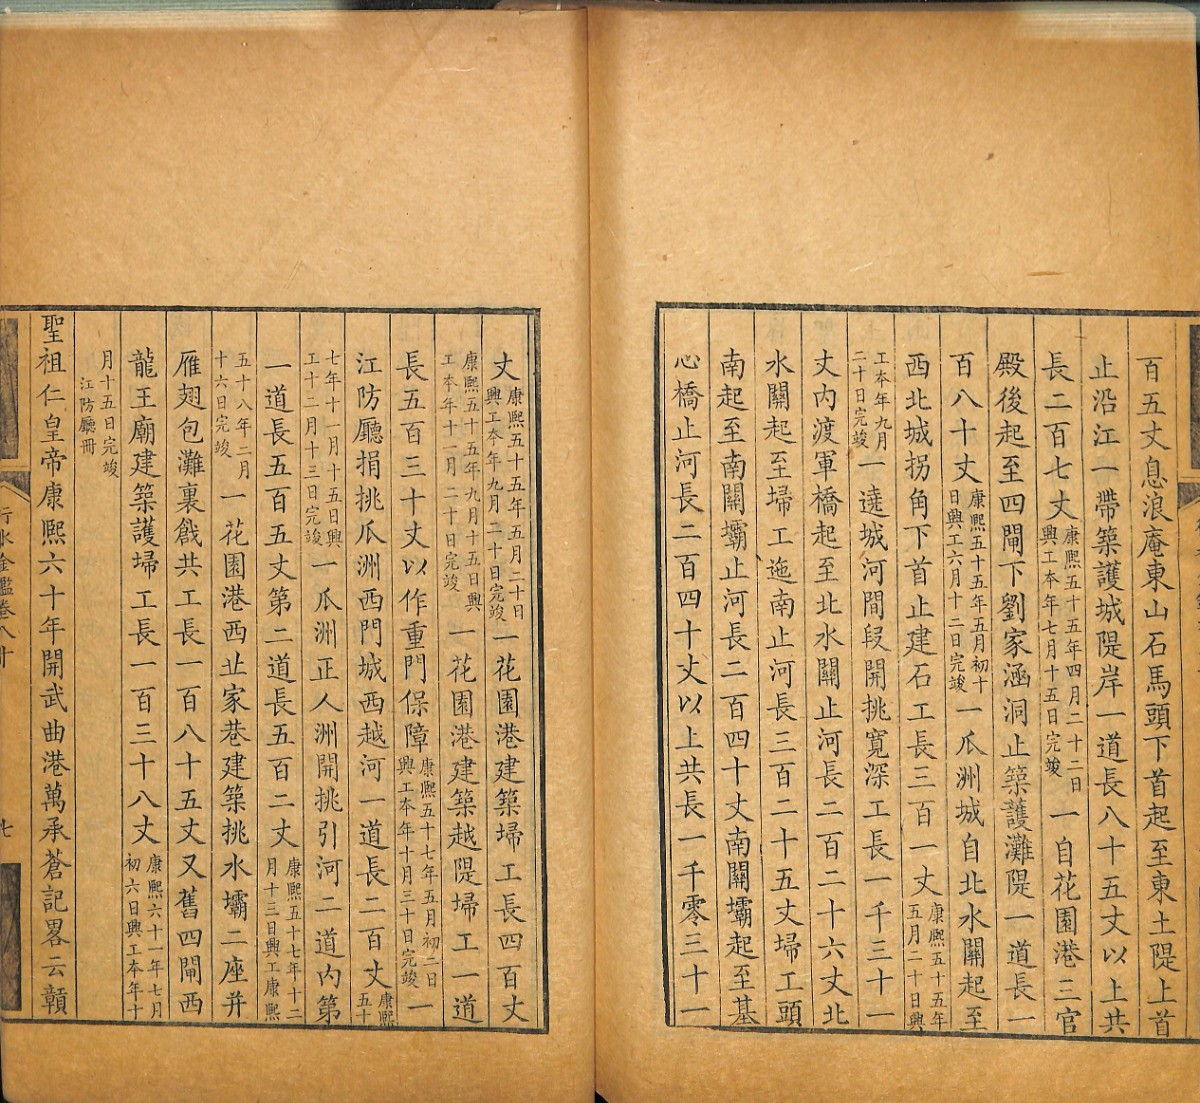 百五丈息浪庵東山石馬頭下首起至東土隄上首
止沿江一帶築護城隄岸一道長八十五丈以上共
長二百七丈康熙五十五年四月二十二日興工本年七月十五日完竣一自花園港三官
殿後起至四閘下劉家涵洞止築護灘隄一道長一
百八十丈康熙五十五年五月初十日興工六月十二日完竣一瓜洲城自北水關起至
西北城拐角下首止建石工長三百一丈康熙五十五年五月二十日興
工本年九月二十日完竣一遶城河間段開挑寬深工長一千三十一
丈內渡軍橋起至北水關止河長二百二十六丈北
水關起至埽工迤南止河長三百二十五丈埽工頭
南起至南關壩止河長二百四十丈南關壩起至基
心橋止河長二百四十丈以上共長一千零三十一
丈康熙五十五年五月二十日興工本年九月二十日完竣一花園港建築埽工長四百丈
康熙五十五年九月十五日興工本年十二月二十日完竣一花園港建築越隄埽工一道
長五百三十丈以作重門保障康熙五十七年五月初二日興工本年十月三十日完竣一
江防廳捐挑瓜洲西門城西越河一道長二百丈康熙五十
七年十一月十五日興工十二月十三日完竣一瓜洲正人洲開挑引河二道內第
一道長五百五丈第二道長五百二丈康熙五十七年十二月十三日興工康熙
五十八年二月十六日完竣一花園港西止家巷建築挑水壩二座幷
雁翅包灘裏戧共工長一百八十五丈又舊四閘西
龍王廟建築護埽工長一百三十八丈康熙六十一年七月初六日興工本年十
月十五日完竣江防廳冊
聖祖仁皇帝康熙六十年開武曲港萬承蒼記畧云贛
行水金鑑卷八十
七